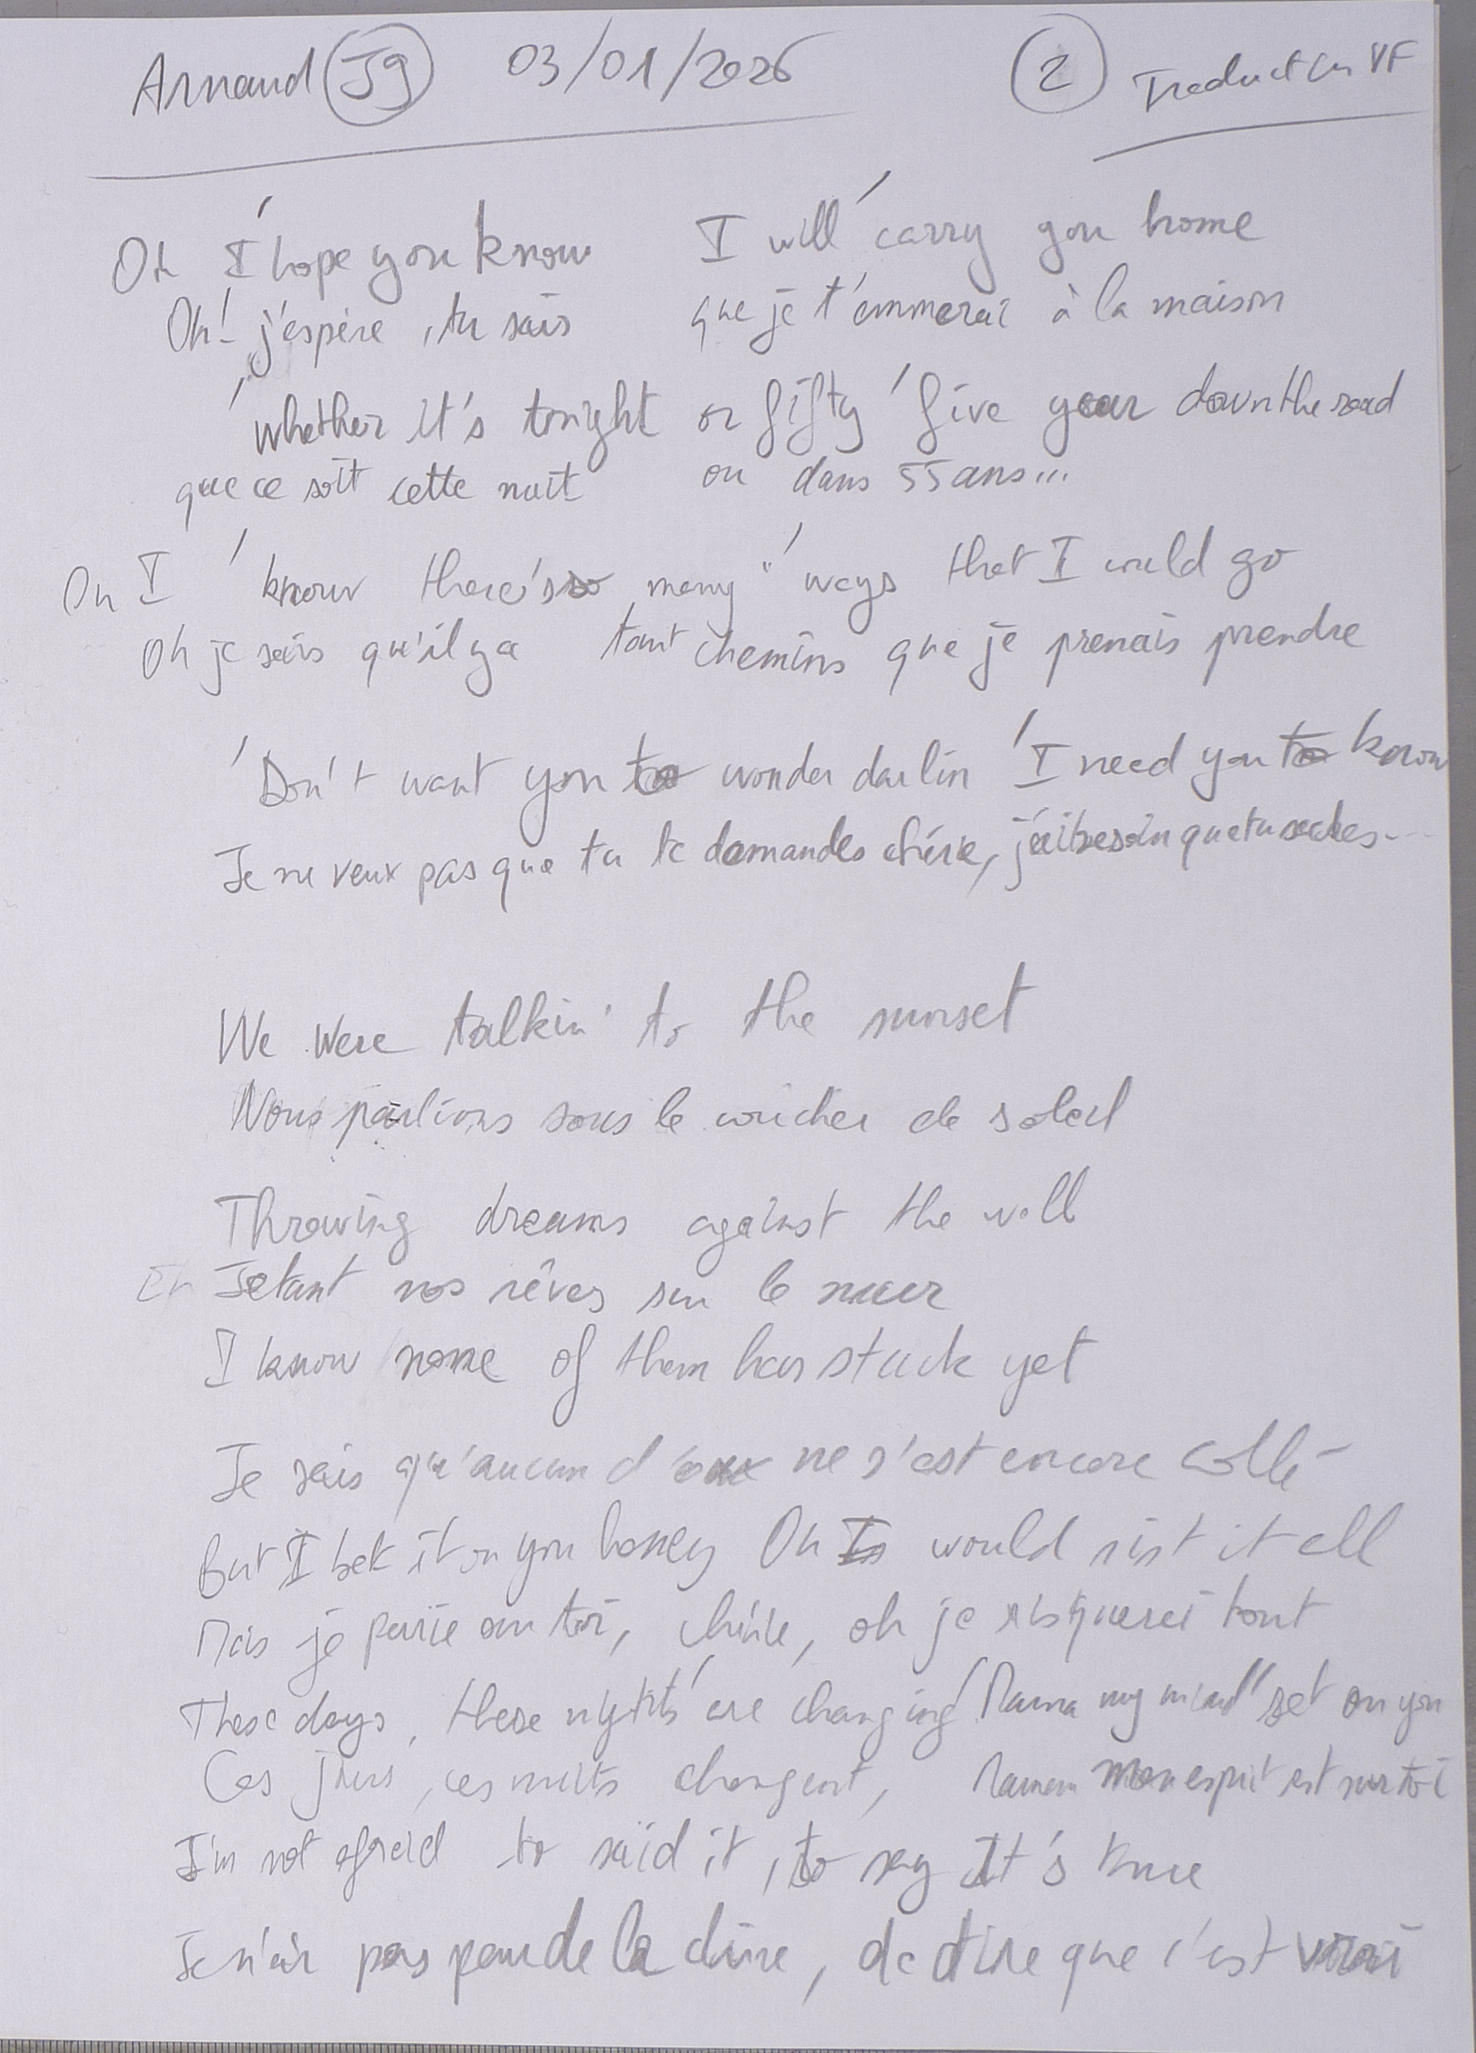 Arnaud J9 03/01/2026 2 Traduction VF
Oh I hope you know I will carry you home
Oh! j'espère, tu sais que je t'emmerai à la maison
whether it's tonight or fifty five year down the road
que ce soit cette nuit ou dans 55 ans...
Oh I know there's so many ways that I could go
Oh je sais qu'il y a tant chemins que je prenais prendre
Don't want you to wonder darlin I need you to know
Je ne veux pas que tu te demandes chérie, j'ai besoin que tu saches...
We were talkin' to the sunset
Nous parlions sous le coucher de soleil
Throwing dreams against the wall
En Jetant nos rêves sur le mur
I know none of them has stuck yet
Je sais qu'aucun d'eux ne s'est encore collé
But I bet it on you honey Oh I would risk it all
Mais je parie sur toi, chérie, oh je risquerai tout
These days, these nights are changing Mama my mind set on you
Ces jours, ces nuits changent, Maman mon esprit est sur toi
I'm not afraid to said it, to say It's true
Je n'ai pas peur de la dire, de dire que c'est vrai